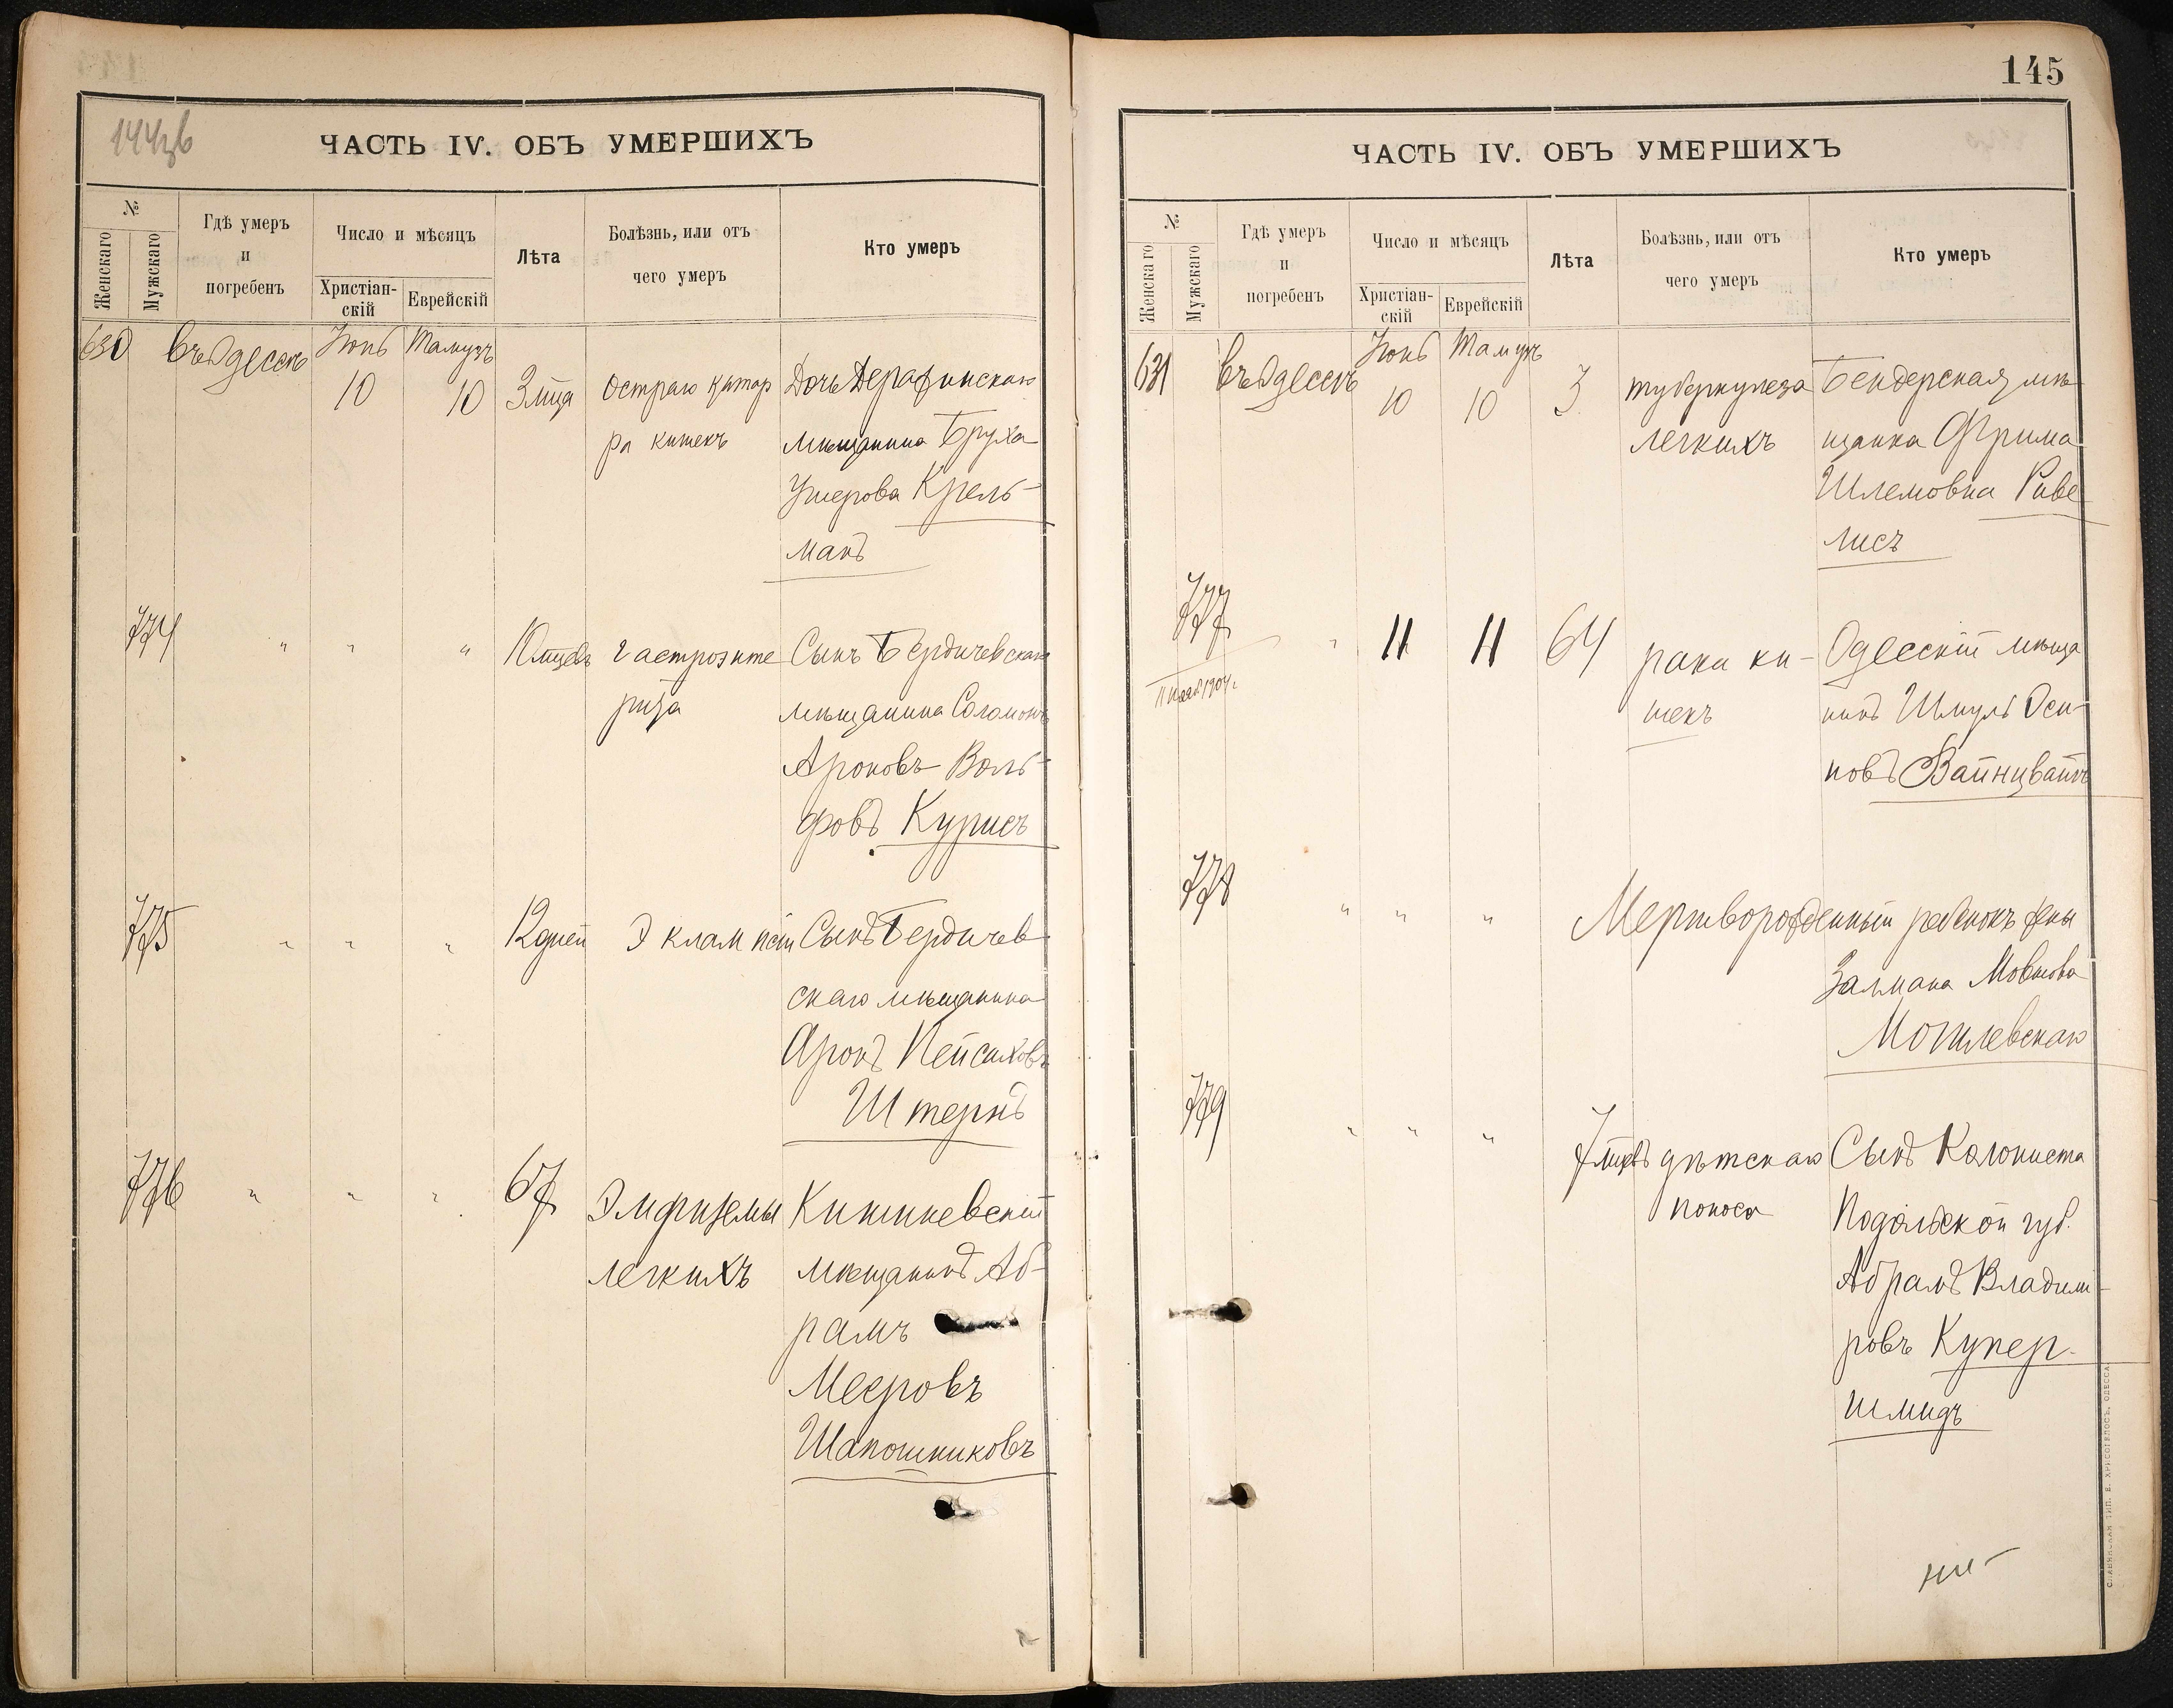 144об
ЧАСТЬ IV. ОБЪ УМЕРШИХЪ
№
Женскаго
Мужскаго
Гдѣ умеръ
и
погребенъ
Число и мѣсяцъ
Христіан-
скій
Еврейскій
Лѣта
Болѣзнь, или отъ
чего умеръ
Кто умеръ
630 въ Одессѣ Іюнь Тамузъ
10 10 3 мца Остраго катар Дочь Деражинскаго
ра кишекъ мѣщанина Бруха
Ушерова Крель-
манъ
774 " " " 10 мцевъ гастроэнте Сынъ Бердичевскаго
рита мѣщанина Соломонъ
Ароновъ Воль-
фовъ Курисъ
775 " " " 12 дней Эклампсіи Сынъ Бердичев
скаго мѣщанина
Аронъ Пейсаховъ
Штернъ
776 " " " 67 Эмфиземы Кишиневскій
легкихъ мѣщанинъ Аб-
рамъ
Мееровъ
Шапошниковъ
145
ЧАСТЬ IV. ОБЪ УМЕРШИХЪ
№
Женскаго
Мужскаго
Гдѣ умеръ
и
погребенъ
Число и мѣсяцъ
Христіан-
скій
Еврейскій
Лѣта
Болѣзнь, или отъ
чего умеръ
Кто умеръ
631 въ Одессѣ Іюнь Тамузъ
10 10 3 туберкулеза Бендерская мѣ
легкихъ щанка Фрима
Шлемовна Риве
лисъ
777 " 11 11 64 рака ки- Одесскій мѣща
1904 г.
шекъ нинъ Шмуль Оси-
повъ Вайнцвайгъ
778 " " " Мертворожденный ребенокъ жены
Залмана Мовшова
Могилевскаго
779 " " " 7 мцевъ дѣтскаго Сынъ Колониста
поноса Подольской губ.
Абрамъ Владими-
ровъ Купер-
шмидъ
СЛАВЯНСКАЯ ТИП. Е. ХРИСОГЕЛОСЪ, ОДЕССА.